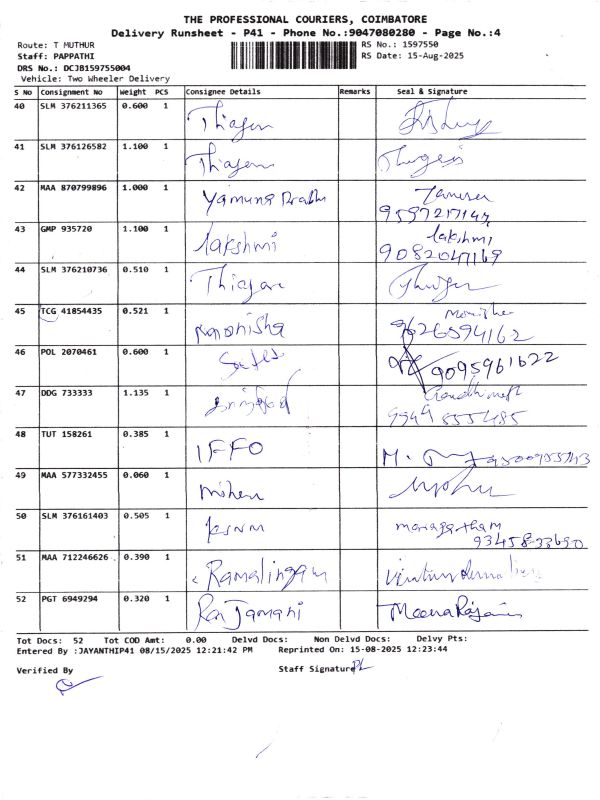 THE PROFESSIONAL COURIERS, COIMBATORE
Delivery Runsheet - P41 - Phone No.:9047080280 - Page No.:4
Route: T MUTHUR
RS No.: 1597550
Staff: PAPPATHI
RS Date: 15-Aug-2025
DRS No.: DCJB159755004
Vehicle: Two Wheeler Delivery
S No Consignment No Weight PCS Consignee Details Remarks Seal & Signature
40 SLM 376211365 0.600 1 Thiagan
41 SLM 376126582 1.100 1 Thiagan
42 MAA 870799896 1.000 1 Yamuna
43 GMP 935720 1.100 1 lakshmi lakshmi
9082047169
44 SLM 376210736 0.510 1 Thiagan
45 TCG 41854435 0.521 1 Manonisha
9626594162
46 POL 2070461 0.600 1 9095961622
47 DDG 733333 1.135 1
48 TUT 158261 0.385 1 IFFO M.
49 MAA 577332455 0.060 1
50 SLM 376161403 0.505 1
51 MAA 712246626 0.390 1 Ramalingam
52 PGT 6949294 0.320 1 Rajamani Meena Rajamani
Tot Docs: 52 Tot COD Amt: 0.00 Delvd Docs: Non Delvd Docs: Delvy Pts:
Entered By :JAYANTHIP41 08/15/2025 12:21:42 PM Reprinted On: 15-08-2025 12:23:44
Verified By Staff Signature